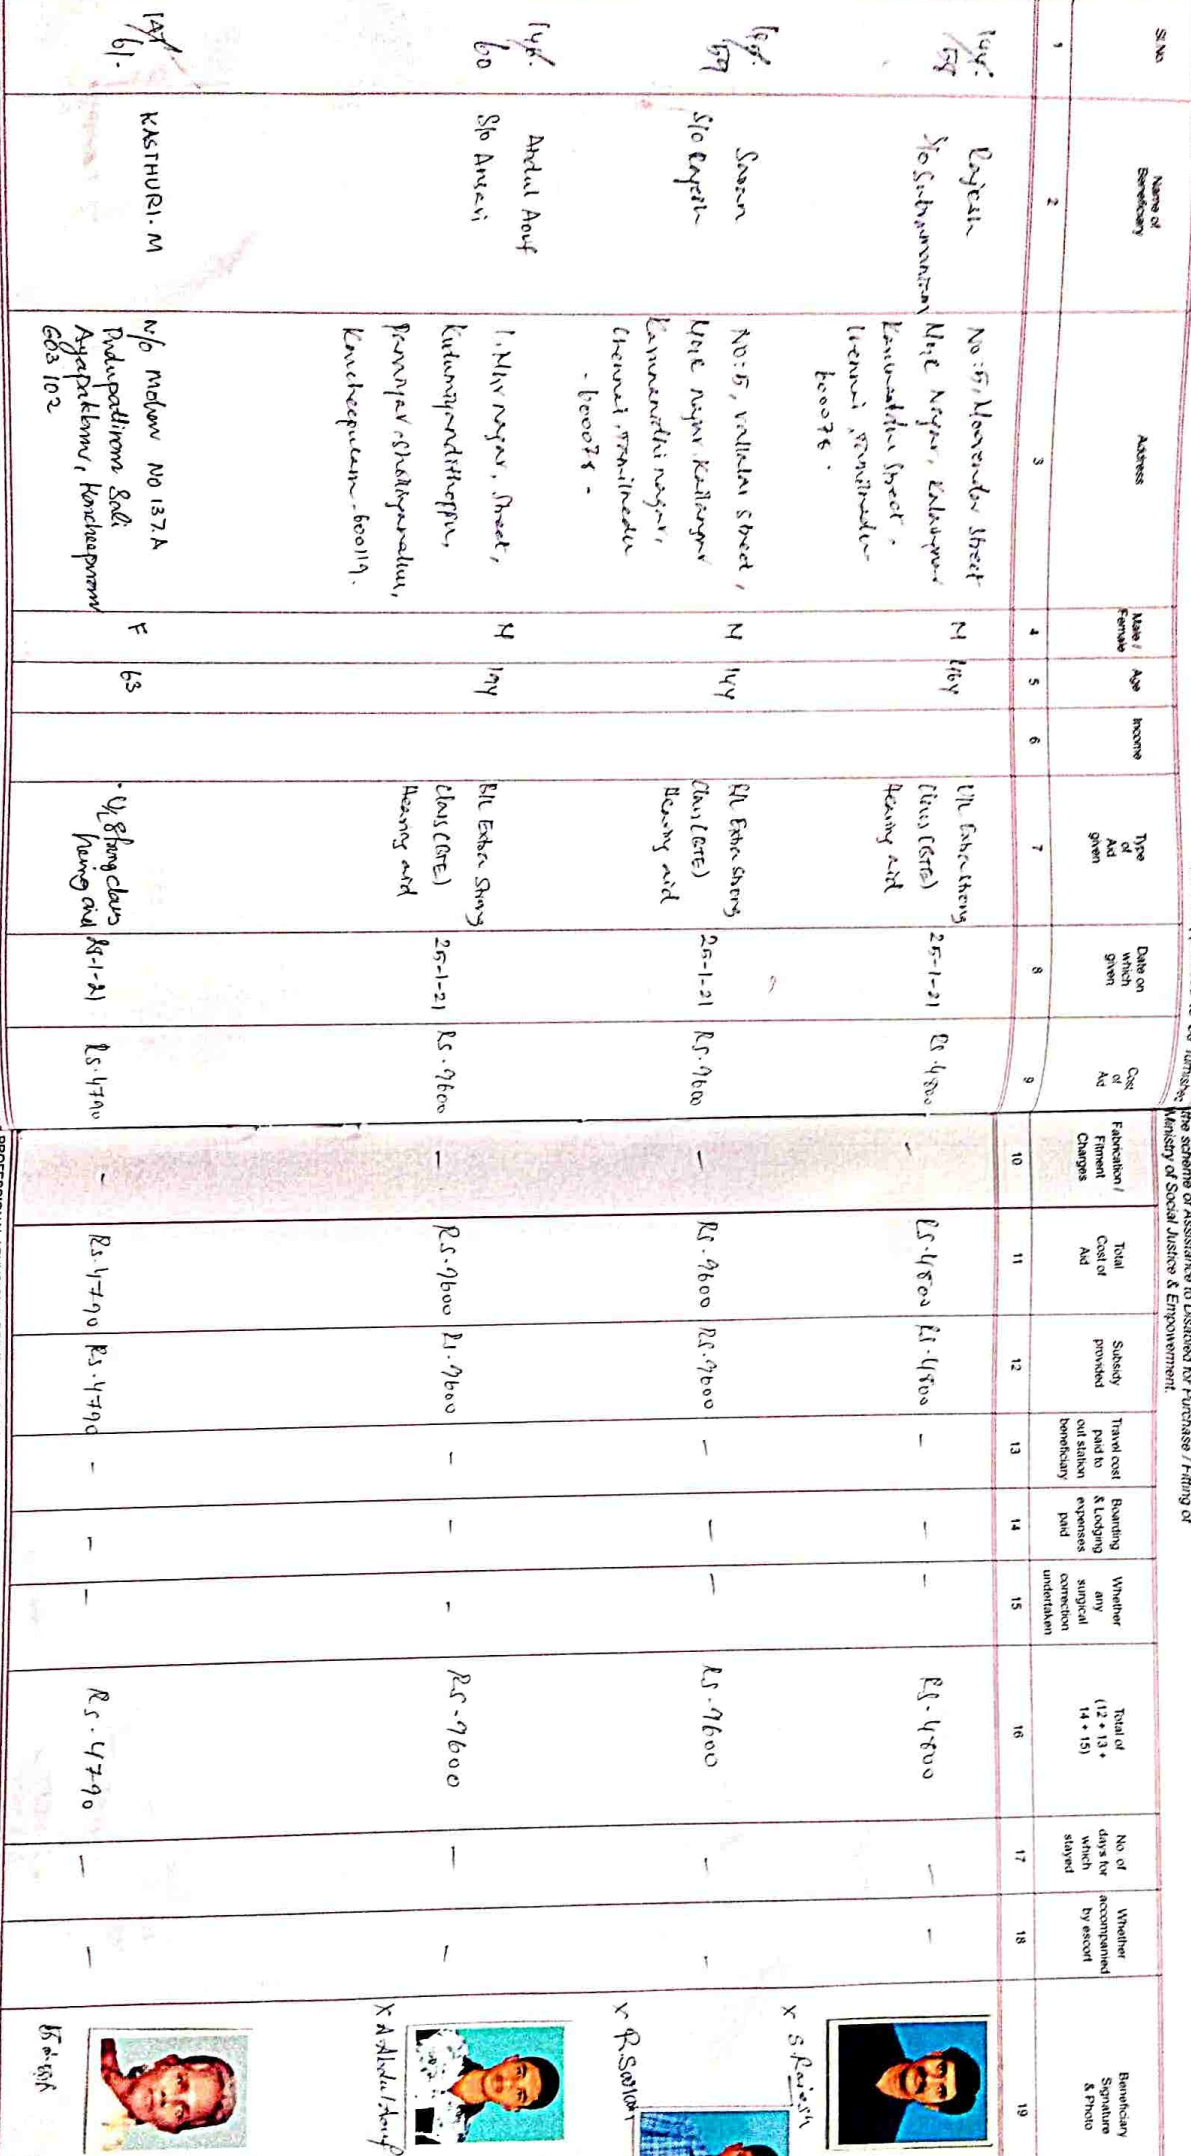 the scheme of Assistance to Disabled for Purchase / Fitting of
Ministry of Social Justice & Empowerment.
Sl.No.
Name of
Beneficiary
Address
Male /
Female
Age
Income
Type
of
Aid
given
Date on
which
given
Cost
of
Aid
Fabrication /
Fitment
Charges
Total
Cost of
Aid
Subsidy
provided
Travel cost
paid to
out station
beneficiary
Boarding
& Lodging
expenses
paid
Whether
any
surgical
correction
undertaken
Total of
(12 + 13 +
14 + 15)
No. of
days for
which
stayed
Whether
accompanied
by escort
Beneficiary
Signature
& Photo
1 2 3 4 5 6 7 8 9 10 11 12 13 14 15 16 17 18 19
58
Rajesh
S/o Subramaniam
Street
Nagar,
Street.
Chennai, Tamilnadu
600078.
M
46Y
Extra Strong
Class (BTE)
Hearing aid
25-1-21
Rs.4800
-
Rs.4800
Rs.4800
-
-
-
Rs.4800
-
-
x S.Rajesh
59
Saran
S/o Rajesh
No:5, vallalar Street,
MGR nagar
Karunanidhi nagar,
Chennai, Tamilnadu
- 600078 -
M
14Y
B/L Extra Strong
Class (BTE)
Hearing aid
25-1-21
Rs.9600
-
Rs.9600
Rs.9600
-
-
-
Rs.9600
-
-
x R.Saran
60
Abdul Aouf
S/o Ansari
nagar, Street,
Kudumiyandithoppu,
Kancheepuram-600119.
M
19Y
B/L Extra Strong
Class (BTE)
Hearing aid
25-1-21
Rs.9600
-
Rs.9600
Rs.9600
-
-
-
Rs.9600
-
-
x A.Abdul Aouf
61.
KASTHURI.M
W/o Mohan No 137.A
Ayapakkam, Kancheepuram
603102
F
63
U/L Strong class
hearing aid
25-1-21
Rs.4790
-
Rs.4790
Rs.4790
-
-
-
Rs.4790
-
-